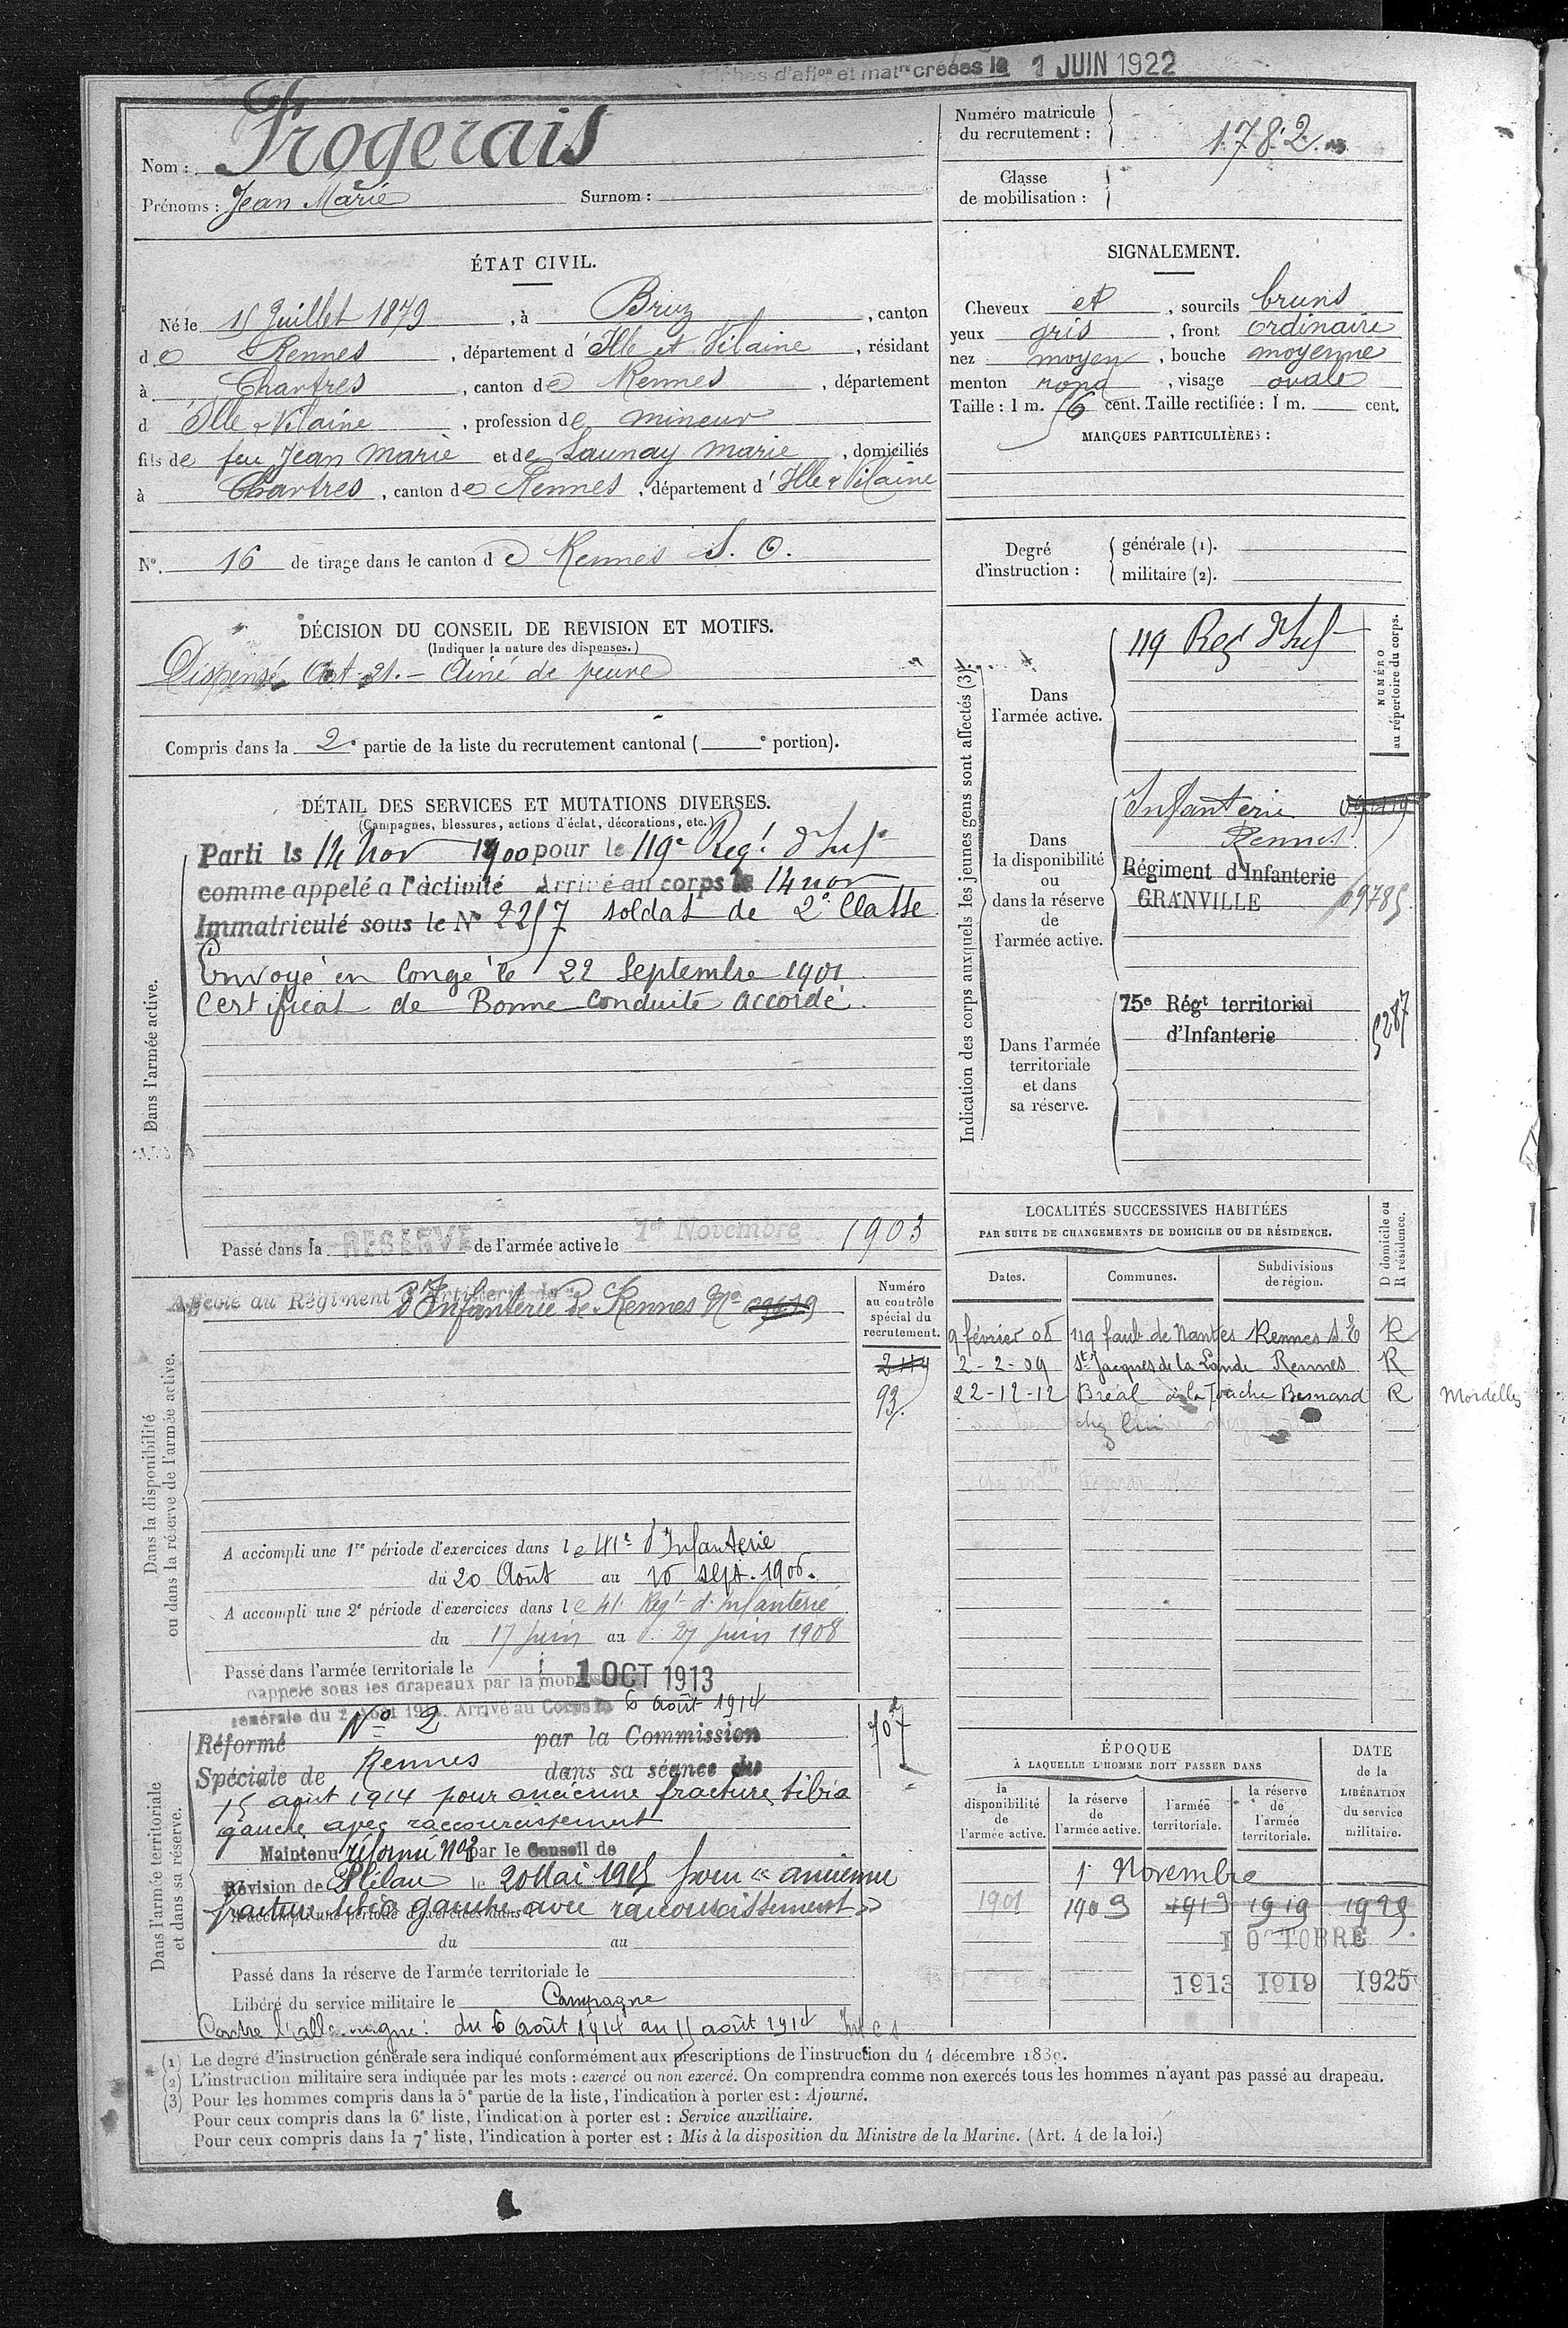 Fiches d'aff^on et mat^re créées le 1 JUIN 1922
Nom : Frogerais
Prénoms : Jean Marie Surnom :
Numéro matricule du recrutement : 1782
Classe de mobilisation :
ÉTAT CIVIL.
Né le 15 Juillet 1879, à Bruz, canton
de Rennes, département d'Ille et Vilaine, résidant
à Chartres, canton de Rennes, département
d'Ille & Vilaine, profession de mineur
fils de feu Jean Marie et de Launay Marie, domiciliés
à Chartres, canton de Rennes, département d'Ille & Vilaine
N° 16 de tirage dans le canton de Rennes S. O.
SIGNALEMENT.
Cheveux et, sourcils bruns
yeux gris, front ordinaire
nez moyen, bouche moyenne
menton rond, visage ovale
Taille : 1 m. 56 cent. Taille rectifiée : 1 m. cent.
MARQUES PARTICULIÈRES :
Degré d'instruction :
générale (1).
militaire (2).
DÉCISION DU CONSEIL DE REVISION ET MOTIFS.
(Indiquer la nature des dispenses.)
Dispensé Art 21. - Ainé de veuve
Compris dans la 2e partie de la liste du recrutement cantonal ( e portion).
DÉTAIL DES SERVICES ET MUTATIONS DIVERSES.
(Campagnes, blessures, actions d'éclat, décorations, etc.)
Dans l'armée active.
Parti le 14 Nov 1900 pour le 119e Reg.t d'Inf^ie
comme appelé a l'activité Arrivé au corps le 14 nov
Immatriculé sous le N° 2257 soldat de 2e Classe
Envoyé en Congé le 22 Septembre 1901
Certificat de Bonne Conduite accordé.
Passé dans la RESERVE de l'armée active le 1er Novembre 1903
Indication des corps auxquels les jeunes gens sont affectés (3).
NUMÉRO au répertoire du corps.
Dans l'armée active.
119 Reg d'Inf
Dans la disponibilité ou dans la réserve de l'armée active.
Infanterie
Rennes
Régiment d'Infanterie
GRANVILLE 09785
Dans l'armée territoriale et dans sa réserve.
75e Régt territorial
d'Infanterie
5287
LOCALITÉS SUCCESSIVES HABITÉES
PAR SUITE DE CHANGEMENTS DE DOMICILE OU DE RÉSIDENCE.
Dates. Communes. Subdivisions de région. D domicile ou R résidence.
9 février 08 119 faub. de Nantes Rennes S. E R
2-2-09 St Jacques de la Lande Rennes R
22-12-12 Bréal à la Touche Besnard R Mordelles
chez lui
Dans la disponibilité ou dans la réserve de l'armée active.
Affecté au Régiment d'Artillerie de
d'Infanterie de Rennes N°
Numéro au contrôle spécial du recrutement.
244
93.
A accompli une 1re période d'exercices dans le 41e d'Infanterie
du 20 Août au 16 sept. 1906.
A accompli une 2e période d'exercices dans le 41 Regt d'infanterie
du 17 juin au 27 juin 1908
Passé dans l'armée territoriale le 1 OCT 1913
Dans l'armée territoriale et dans sa réserve.
Rappelé sous les drapeaux par la mobilisation
générale du 2 Août 1914. Arrivé au Corps le 6 août 1914
Réformé N° 2 par la Commission
Spéciale de Rennes dans sa séance du
15 août 1914 pour ancienne fracture tibia
gauche avec raccourcissement
Maintenu réformé N°2 par le Conseil de
Révision de Plélan le 20 Mai 1915 pour « ancienne
fracture tibia gauche avec raccourcissement »
A accompli une période d'exercices dans
du au
Passé dans la réserve de l'armée territoriale le
Libéré du service militaire le
Campagne
Contre l'allemagne : du 6 août 1914 au 15 août 1914
707
ÉPOQUE
À LAQUELLE L'HOMME DOIT PASSER DANS
la disponibilité de l'armée active. la réserve de l'armée active. l'armée territoriale. la réserve de l'armée territoriale.
DATE de la LIBÉRATION du service militaire.
1er Novembre
1901 1903 1913 1919 1925
1 OCTOBRE
1913 1919 1925
(1) Le degré d'instruction générale sera indiqué conformément aux prescriptions de l'instruction du 4 décembre 1889.
(2) L'instruction militaire sera indiquée par les mots : exercé ou non exercé. On comprendra comme non exercés tous les hommes n'ayant pas passé au drapeau.
(3) Pour les hommes compris dans la 5e partie de la liste, l'indication à porter est : Ajourné.
Pour ceux compris dans la 6e liste, l'indication à porter est : Service auxiliaire.
Pour ceux compris dans la 7e liste, l'indication à porter est : Mis à la disposition du Ministre de la Marine. (Art. 4 de la loi.)